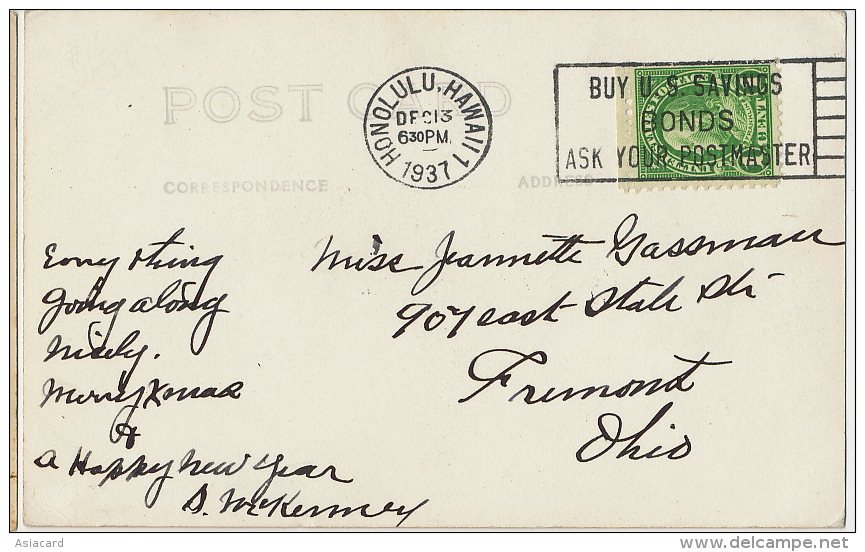 POST CARD
CORRESPONDENCE
ADDRESS
HONOLULU, HAWAII 1
DEC 13
630 PM
1937
BUY U S SAVINGS
BONDS
ASK YOUR POSTMASTER
Every thing
going along
nicely.
Merry Xmas
&
a Happy New Year
S. McKenney
Miss Jeannette Gassman
907 east State Str
Fremont
Ohio
Asiacard
www.delcampe.net